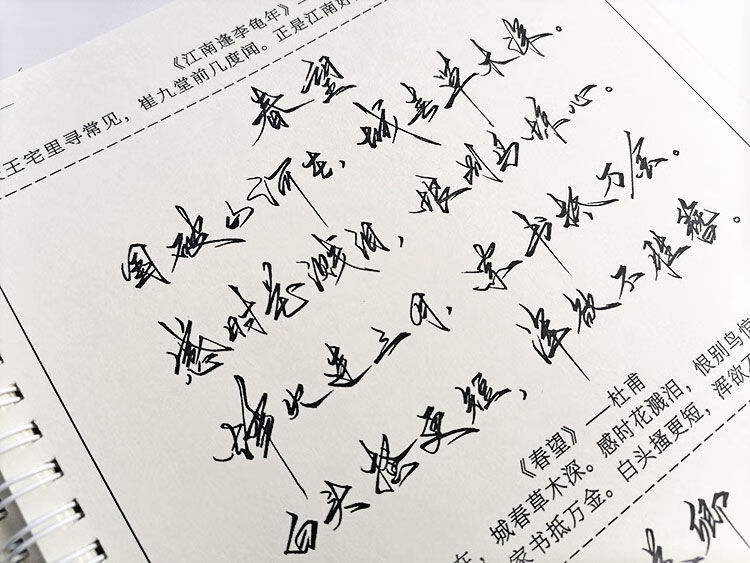 《江南逢李龟年》
王宅里寻常见，崔九堂前几度闻。正是江南好
春望
国破山河在，城春草木深。
感时花溅泪，恨别鸟惊心。
烽火连三月，家书抵万金。
白头搔更短，浑欲不胜簪。
《春望》—杜甫
在，城春草木深。感时花溅泪，恨别鸟惊
家书抵万金。白头搔更短，浑欲
卿